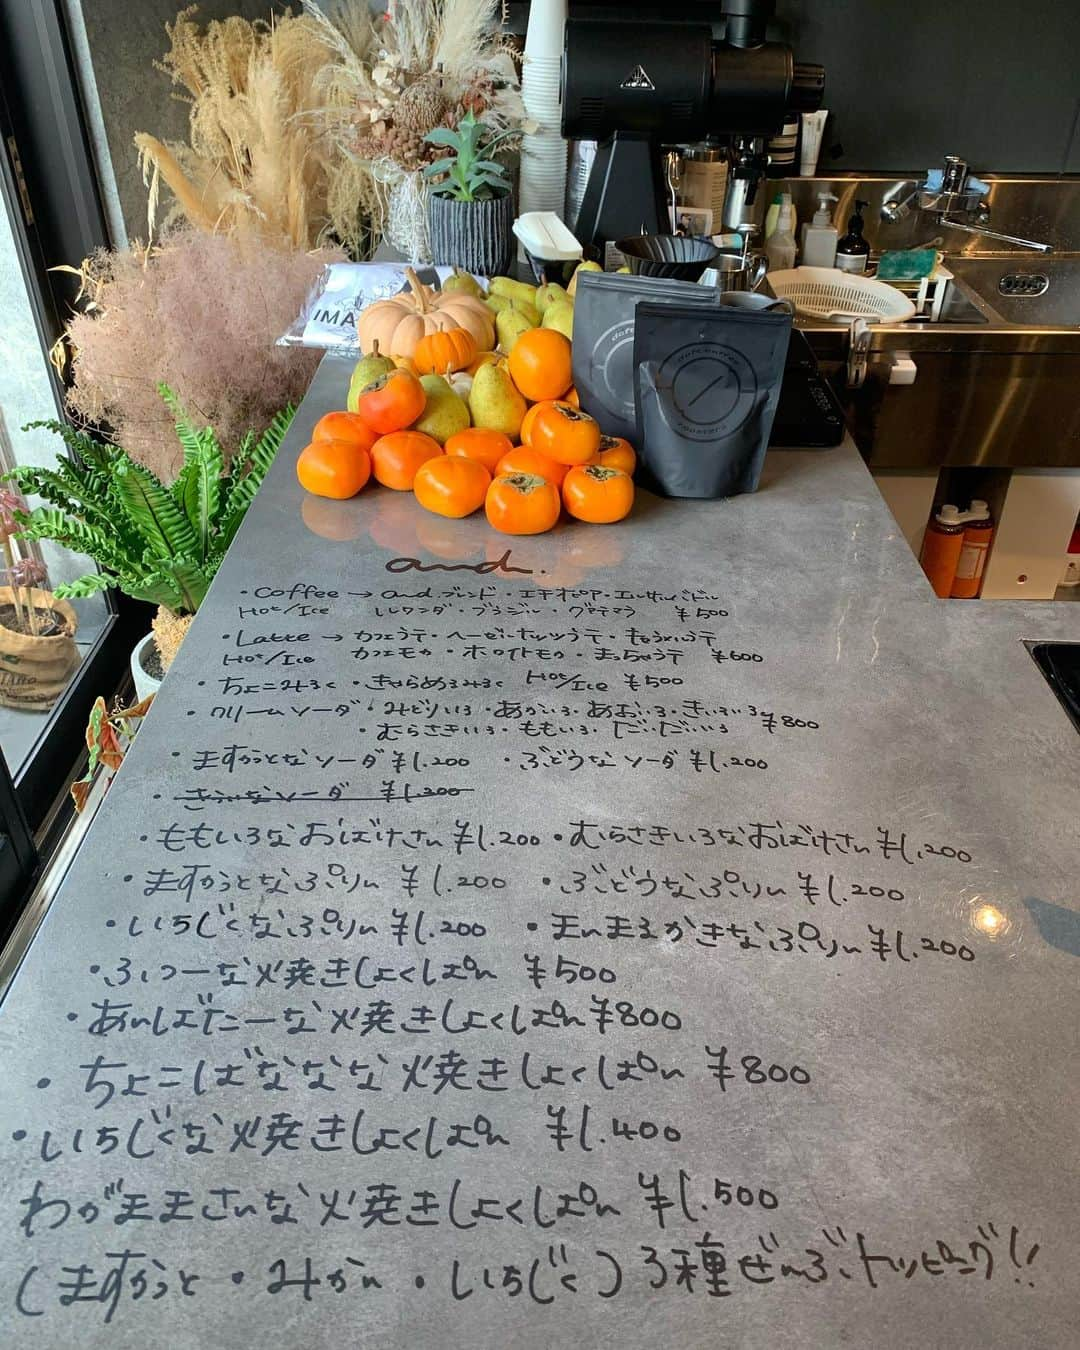 IMA
dotcoffee
roasters
and.
・Coffee → and.ブレンド・エチオピア・エルサルバドル
Hot/Ice ルワンダ・ブラジル・グァテマラ ¥500
・Latte → カフェラテ・ヘーゼルナッツラテ・きゃらめるラテ
Hot/Ice カフェモカ・ホワイトモカ・まっちゃラテ ¥600
・ちょこみるく・きゃらめるみるく Hot/Ice ¥500
・クリームソーダ・みどりいろ・あかいろ・あおいろ・きいろいろ ¥800
・むらさきいろ・ももいろ・だいだいいろ
・ますかっとなソーダ ¥1.200 ・ぶどうなソーダ ¥1.200
・きういなソーダ ¥1.200
・ももいろなおばけさん ¥1.200 ・むらさきいろなおばけさん ¥1.200
・ますかっとなぷりん ¥1.200 ・ぶどうなぷりん ¥1.200
・いちじくなぷりん ¥1.200 ・まんまるかきなぷりん ¥1.200
・ふつーな火焼きしょくぱん ¥500
・あんばたーな火焼きしょくぱん ¥800
・ちょこばななな火焼きしょくぱん ¥800
・いちじくな火焼きしょくぱん ¥1.400
わがままさんな火焼きしょくぱん ¥1.500
(ますかっと・みかん・いちじく)3種ぜんぶトッピング!!